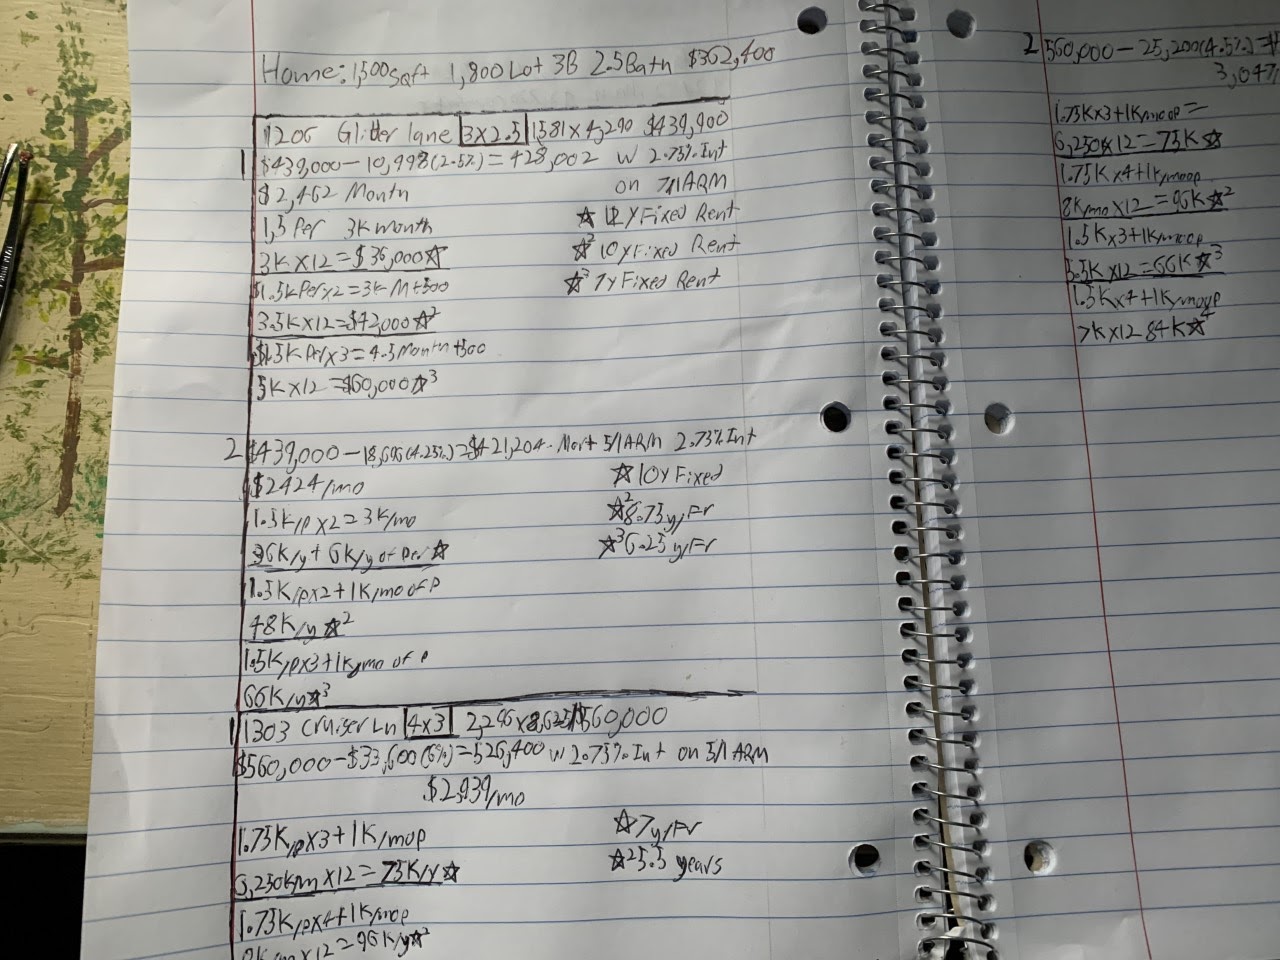 Home: 1,500sqft 1,800 Lot 3B 2.5Bath $362,400
1206 Glitter lane 3x2.5 1581 x 4,290 $439,900
1 $439,000 - 10,998(2.5%) = 428,002 w 2.75% Int
$2,462 Month on 7/1 ARM
1,5 Per 3K month ☆ 12 Y Fixed Rent
3K x12 = $36,000☆ ☆² 10 Y Fixed Rent
$1.5K Per x2 = 3K M+500 ☆³ 7 Y Fixed Rent
3.5K x12 = $42,000☆²
$1.5K Per x3 = 4.5 Month +500
5K x12 = $60,000☆³
2 $439,000 - 18,696(4.25%) = $421,204 - Mort 5/1 ARM 2.75% Int
$2424/mo ☆ 10Y Fixed
1.5K/p x2 = 3K/mo ☆² 8.75 y/Fr
36K/y + 6K/y of Per ☆ ☆³ 6.25 y/Fr
1.5K/p x2 + 1K/mo of P
48K/y ☆²
1.5K/p x3 + 1K/mo of P
66K/y☆³
1 1303 Cruiser Ln 4x3 2,296 x $560,000
$560,000 - $33,600(6%) = 526,400 w 2.75% Int on 5/1 ARM
$2,939/mo
1.75K/p x3 + 1K/mop ☆ 7y/Fr
6,250K/m x12 = 75K/y ☆ ☆² 5.5 years
1.75K/p x4 + 1K/mop
x12 = 96K/y☆²
2 560,000 - 25,200(4.5%) =
3,047
1.75K x3 + 1K/mo op =
6,250 x12 = 75K ☆
1.75K x4 + 1K/mop
8K/mo x12 = 96K ☆²
1.5K x3 + 1K/mop
5.5K x12 = 66K ☆³
1.5K x4 + 1K/mop
7K x12 84K☆⁴